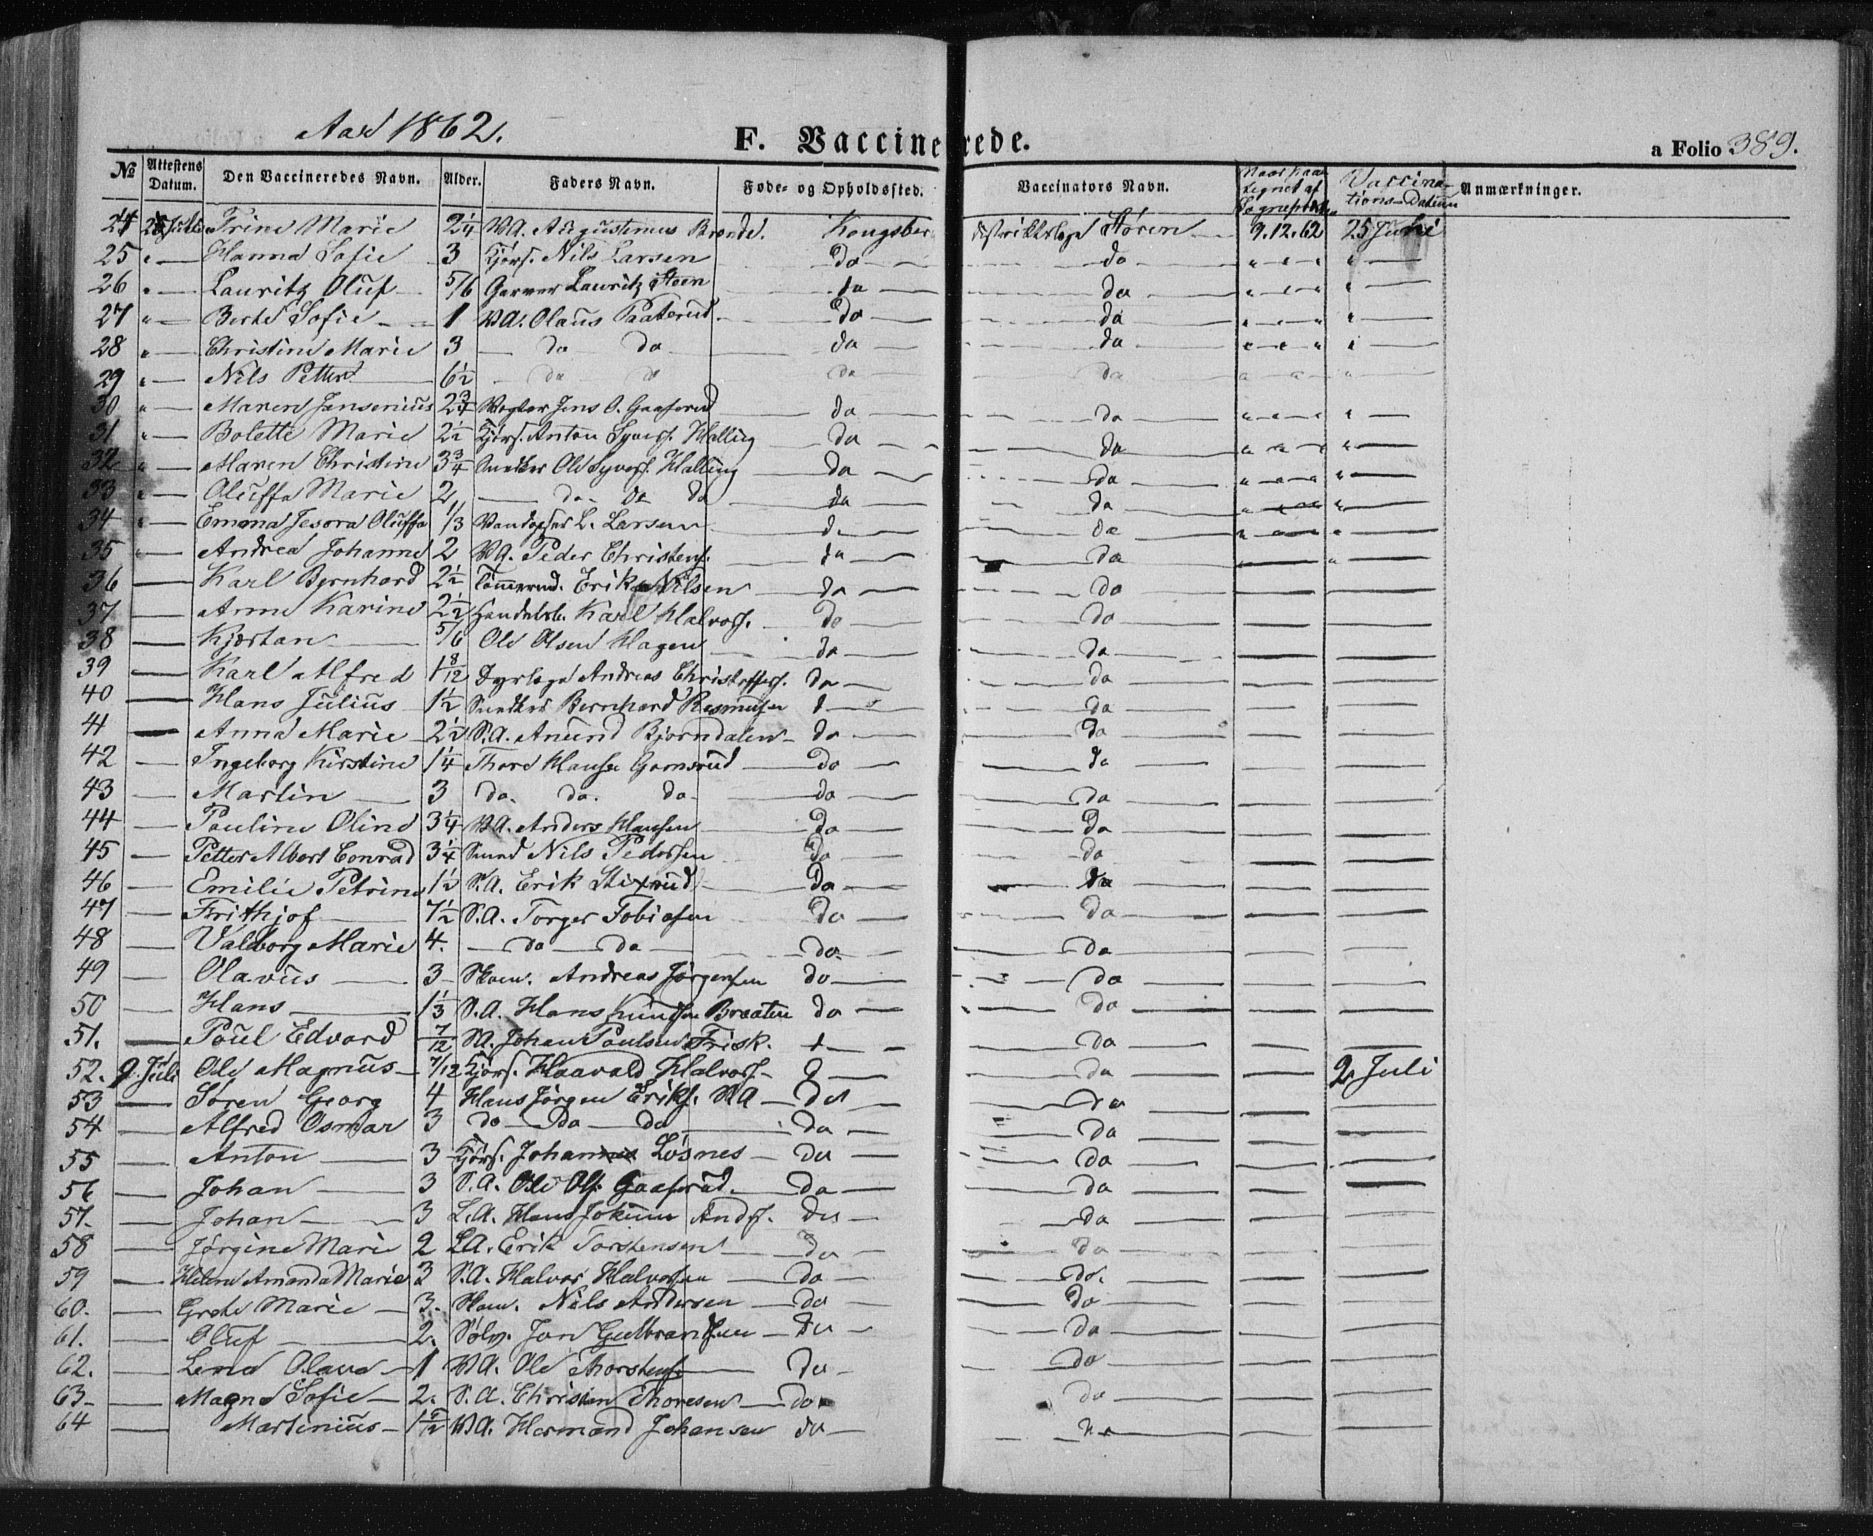 Aar 1862. F. Vaccinerede. a Folio 389.
№ Attestens Datum. Den Vaccineredes Navn. Alder. Faders Navn. Føde- og Opholdssted. Vaccinators Navn. Vaccinations-Datum Anmærkninger.
24 Juli Trine Marie 2 1/4 Augustinus Kongsber Distriktslæge Støren 9.12.62 25 Juni
25 " — Hanna Sofie 3 Kjørs. Nils Larsen do do " " " " —
26 " — Lauritz Oluf 5/6 Garver Lauritz Steen da da " " " "
27 " — Berte Sofie 1 VA. Olaus Paaterud. do da " " " "
28 " — Christine Marie 3 — do do da da " " " " —
29 " — Nils Petter 6 1/2 do do do da " " " "
30 " — Maren Jansenius 2 3/4 Vogter Jens O. Gaaserud da da " " " " —
31 " — Bolette Marie 2 1/2 Kjørs. Anton Syvers. Halling da da " " " " —
32 " — Maren Christine 3 3/4 Snedker Ole Syvers. Halling da da " " " " —
33 " — Oluffa Marie 2 — do do do da da " —
34 " — Emma Jesora Oluffa 1/3 L. Larsen d. da " —
35 " — Andrea Johanne 2 VA. Peder Christens. da da —
36 — Karl Bernhard 2 1/2 Tømmermd. Erik Nilsen do do —
37 — Anne Karine 2 1/2 Handelsb. Karl Halvors. do do —
38 — Kjøstan 5/6 Ole Olsen Hagen do da —
39 — Karl Alfred 1 8/12 Dyrlæge Andreas Christoffers. da da —
40 — Hans Julius 1 1/2 Snedker Bernhard Rasmusen d — da —
41 — Anna Marie 2 1/2 S.A. Anund Bjørndalen do do —
42 — Ingeborg Kirstine 1 1/4 Thore Hansen Gomsrud do da —
43 — Martin 3 do. do. do do da —
44 — Pauline Oline 3 1/4 VA. Anders Hansen do da —
45 — Petter Albert Conrad 3 1/4 Smed Nils Pedersen do do —
46 — Emilie Petrine 1 1/2 S.A. Erik Stixrud do da —
47 — Frithjof 7 1/2 S.A. Torger Tobiasen do da —
48 — Valborg Marie 4. — do — do do. da —
49 — Olavus 3 Skom. Andreas Jørgensen do do —
50 — Hans 1 1/3 S.A. Hans Knudsen Braaten do do —
51. — Paul Edvard 7/12 SA. Johan Paulsen Frisk. da —
52. 9 Juli Ole Magnus 7/12 Kjørs. Haavald Halvors. da 2 Juli
53 — Søren Georg 4 Hans Jørgen Eriks. VA do da —
54 — Alfred Osmar 3 do — do — do do da —
55 — Anton 3 Kjørs. Johannes Løsnes do da —
56 — Johan 3 S.A. Ole Ols. Gaaserud do da —
57. — Johan 3 L.A. Hans Jokum Ands. do da —
58 — Jørgine Marie 2 LA. Erik Torstensen do da —
59 — Helene Amanda Marie 3 S.A. Halvor Halvorsen do do. —
60. — Grete Marie 3. Skom. Nils Andersen do da —
61. — Oluf 2. Sølv. Jon Gulbrandsen do da —
62. — Lena Olava 1 VA. Ole Thorstens. do do —
63 — Magna Sofie 2. S.A. Christen Thoresen do do —
64 — Martinius 1 VA. Hermand Johansen do —